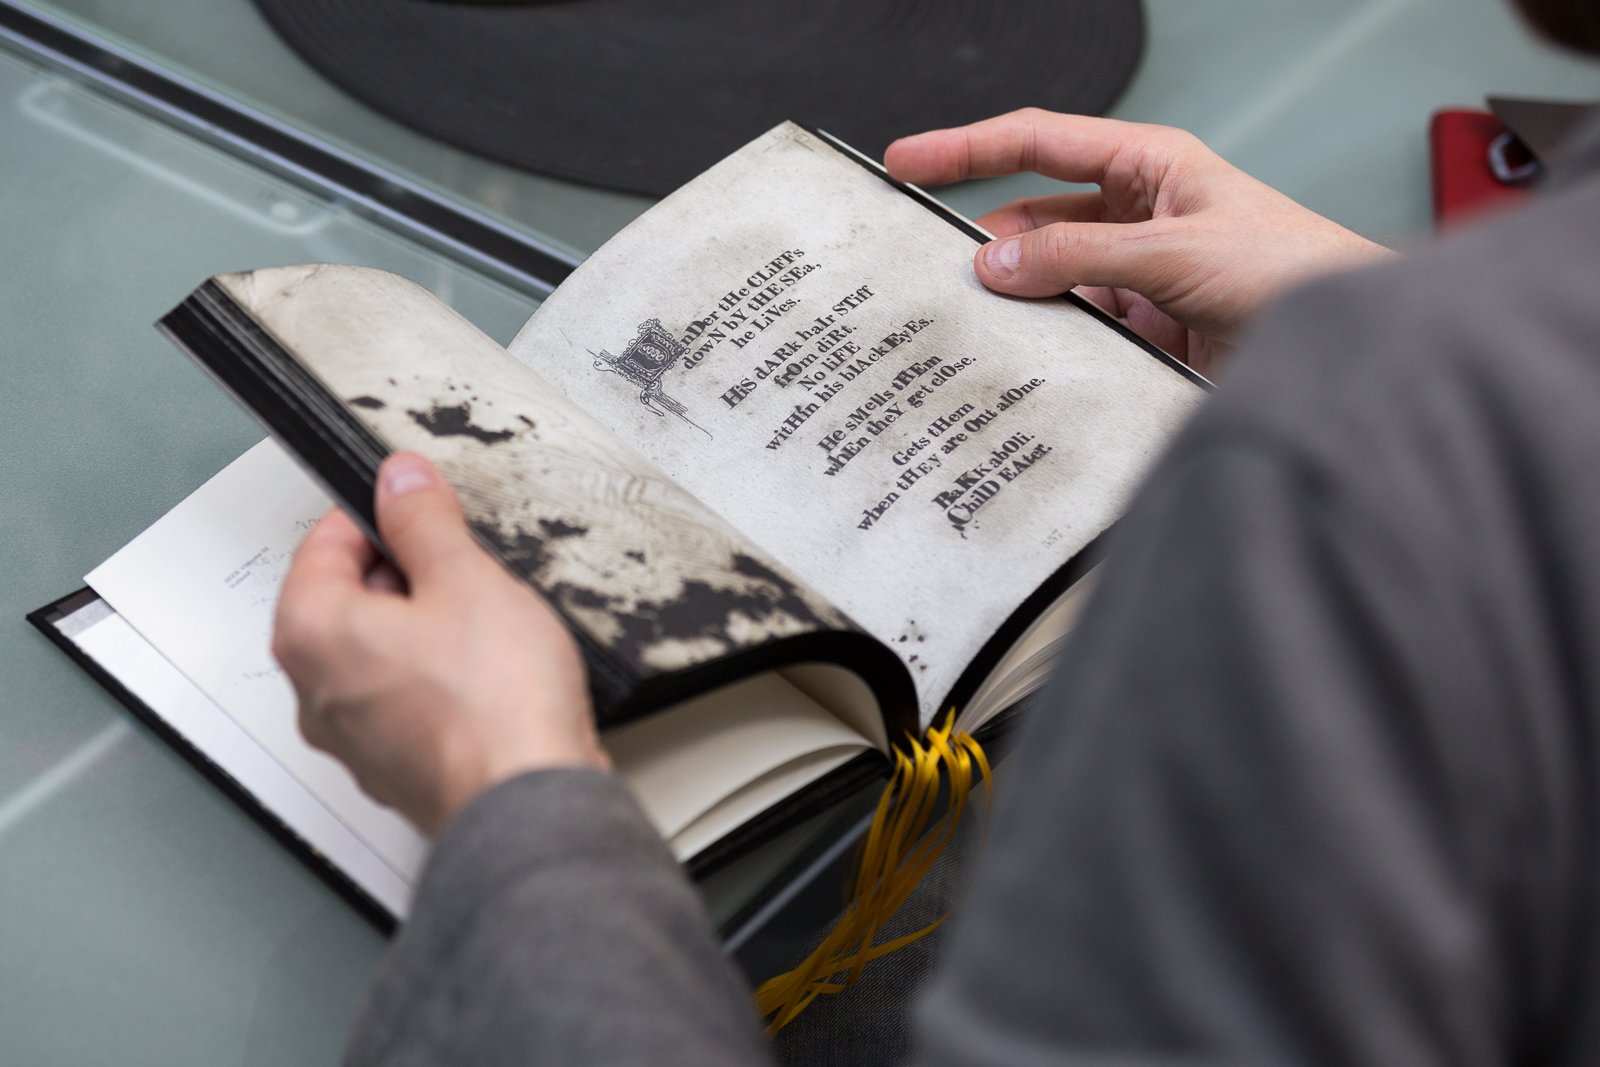 UnDer tHe CLiFFs
dowN bY tHE SEa,
he LiVes.
HiS dARk haIr STiff
frOm diRt.
No liFE
witHin his blAck EyEs.
He sMells tREm
whEn theY get clOse.
Gets tHem
when tHEy are Out alOne.
RaKKabOli.
ChilD EAter.
337